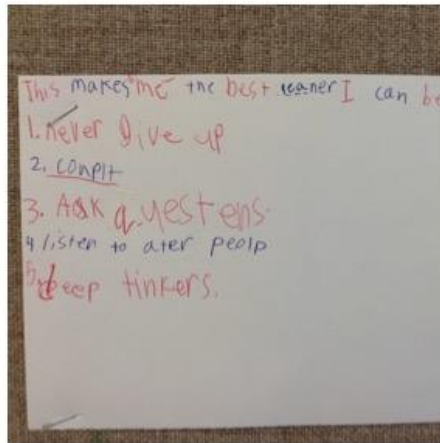 This makes me the best leaner I can be
1. never give up
2. conplt
3. Ask questens.
4 listen to ater peolp
5. deep tinkers.